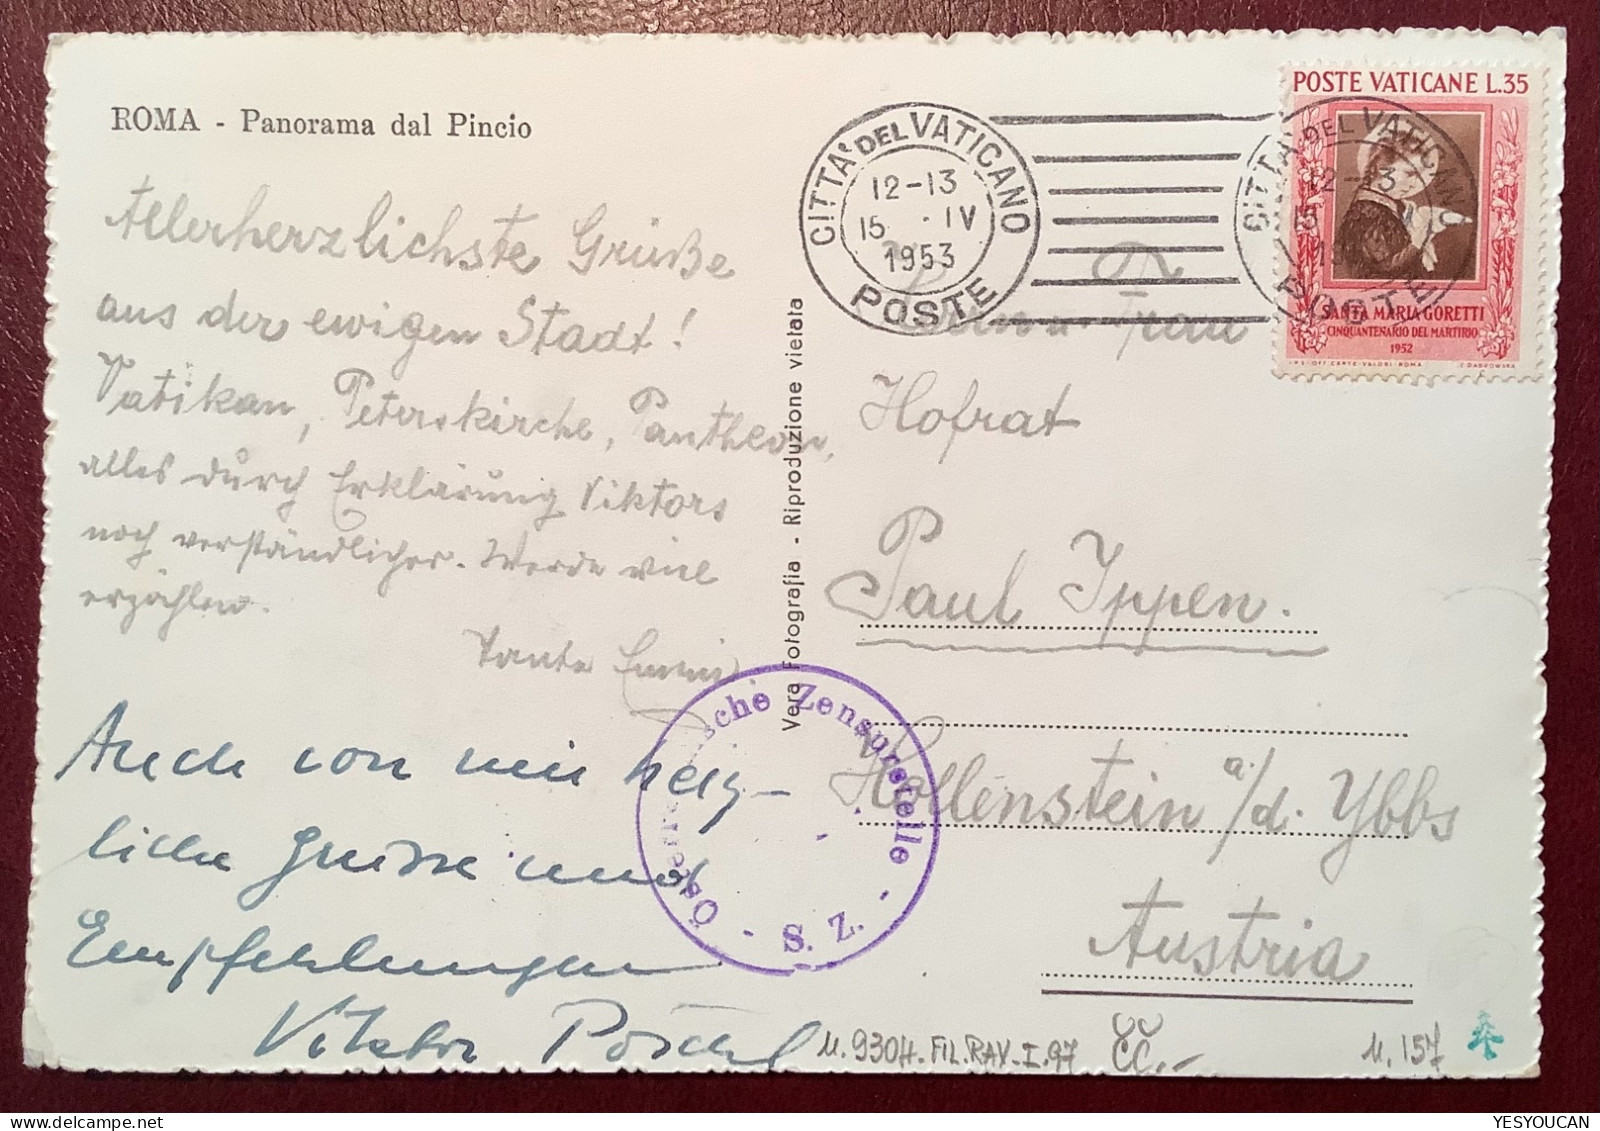 ROMA - Panorama dal Pincio
Allerherzlichste Grüße
aus der ewigen Stadt!
Vatikan, Peterskirche, Pantheon,
alles durch Erklärung Viktors
noch verständlicher. Werde viel
erzählen.
Tante
Auch von mir herz-
liche Grüsse und
Empfehlungen
Viktor
Vera Fotografia - Riproduzione vietata
CITTA' DEL VATICANO
12-13
15 . IV
1953
POSTE
CITTA' DEL VATICANO
12-13
15
POSTE
POSTE VATICANE L.35
SANTA MARIA GORETTI
CINQUANTENARIO DEL MARTIRIO
1952
I.P.S. OFF. CARTE-VALORI-ROMA
C. DABROWSKA
Herrn u. Frau
Hofrat
Paul Ippen.
Hollenstein a./d. Ybbs
Austria
Österreichische Zensurstelle - S. Z. -
M. 930H. FIL.RAV-I.97
ČČ.-
M. 157
YESYOUCAN